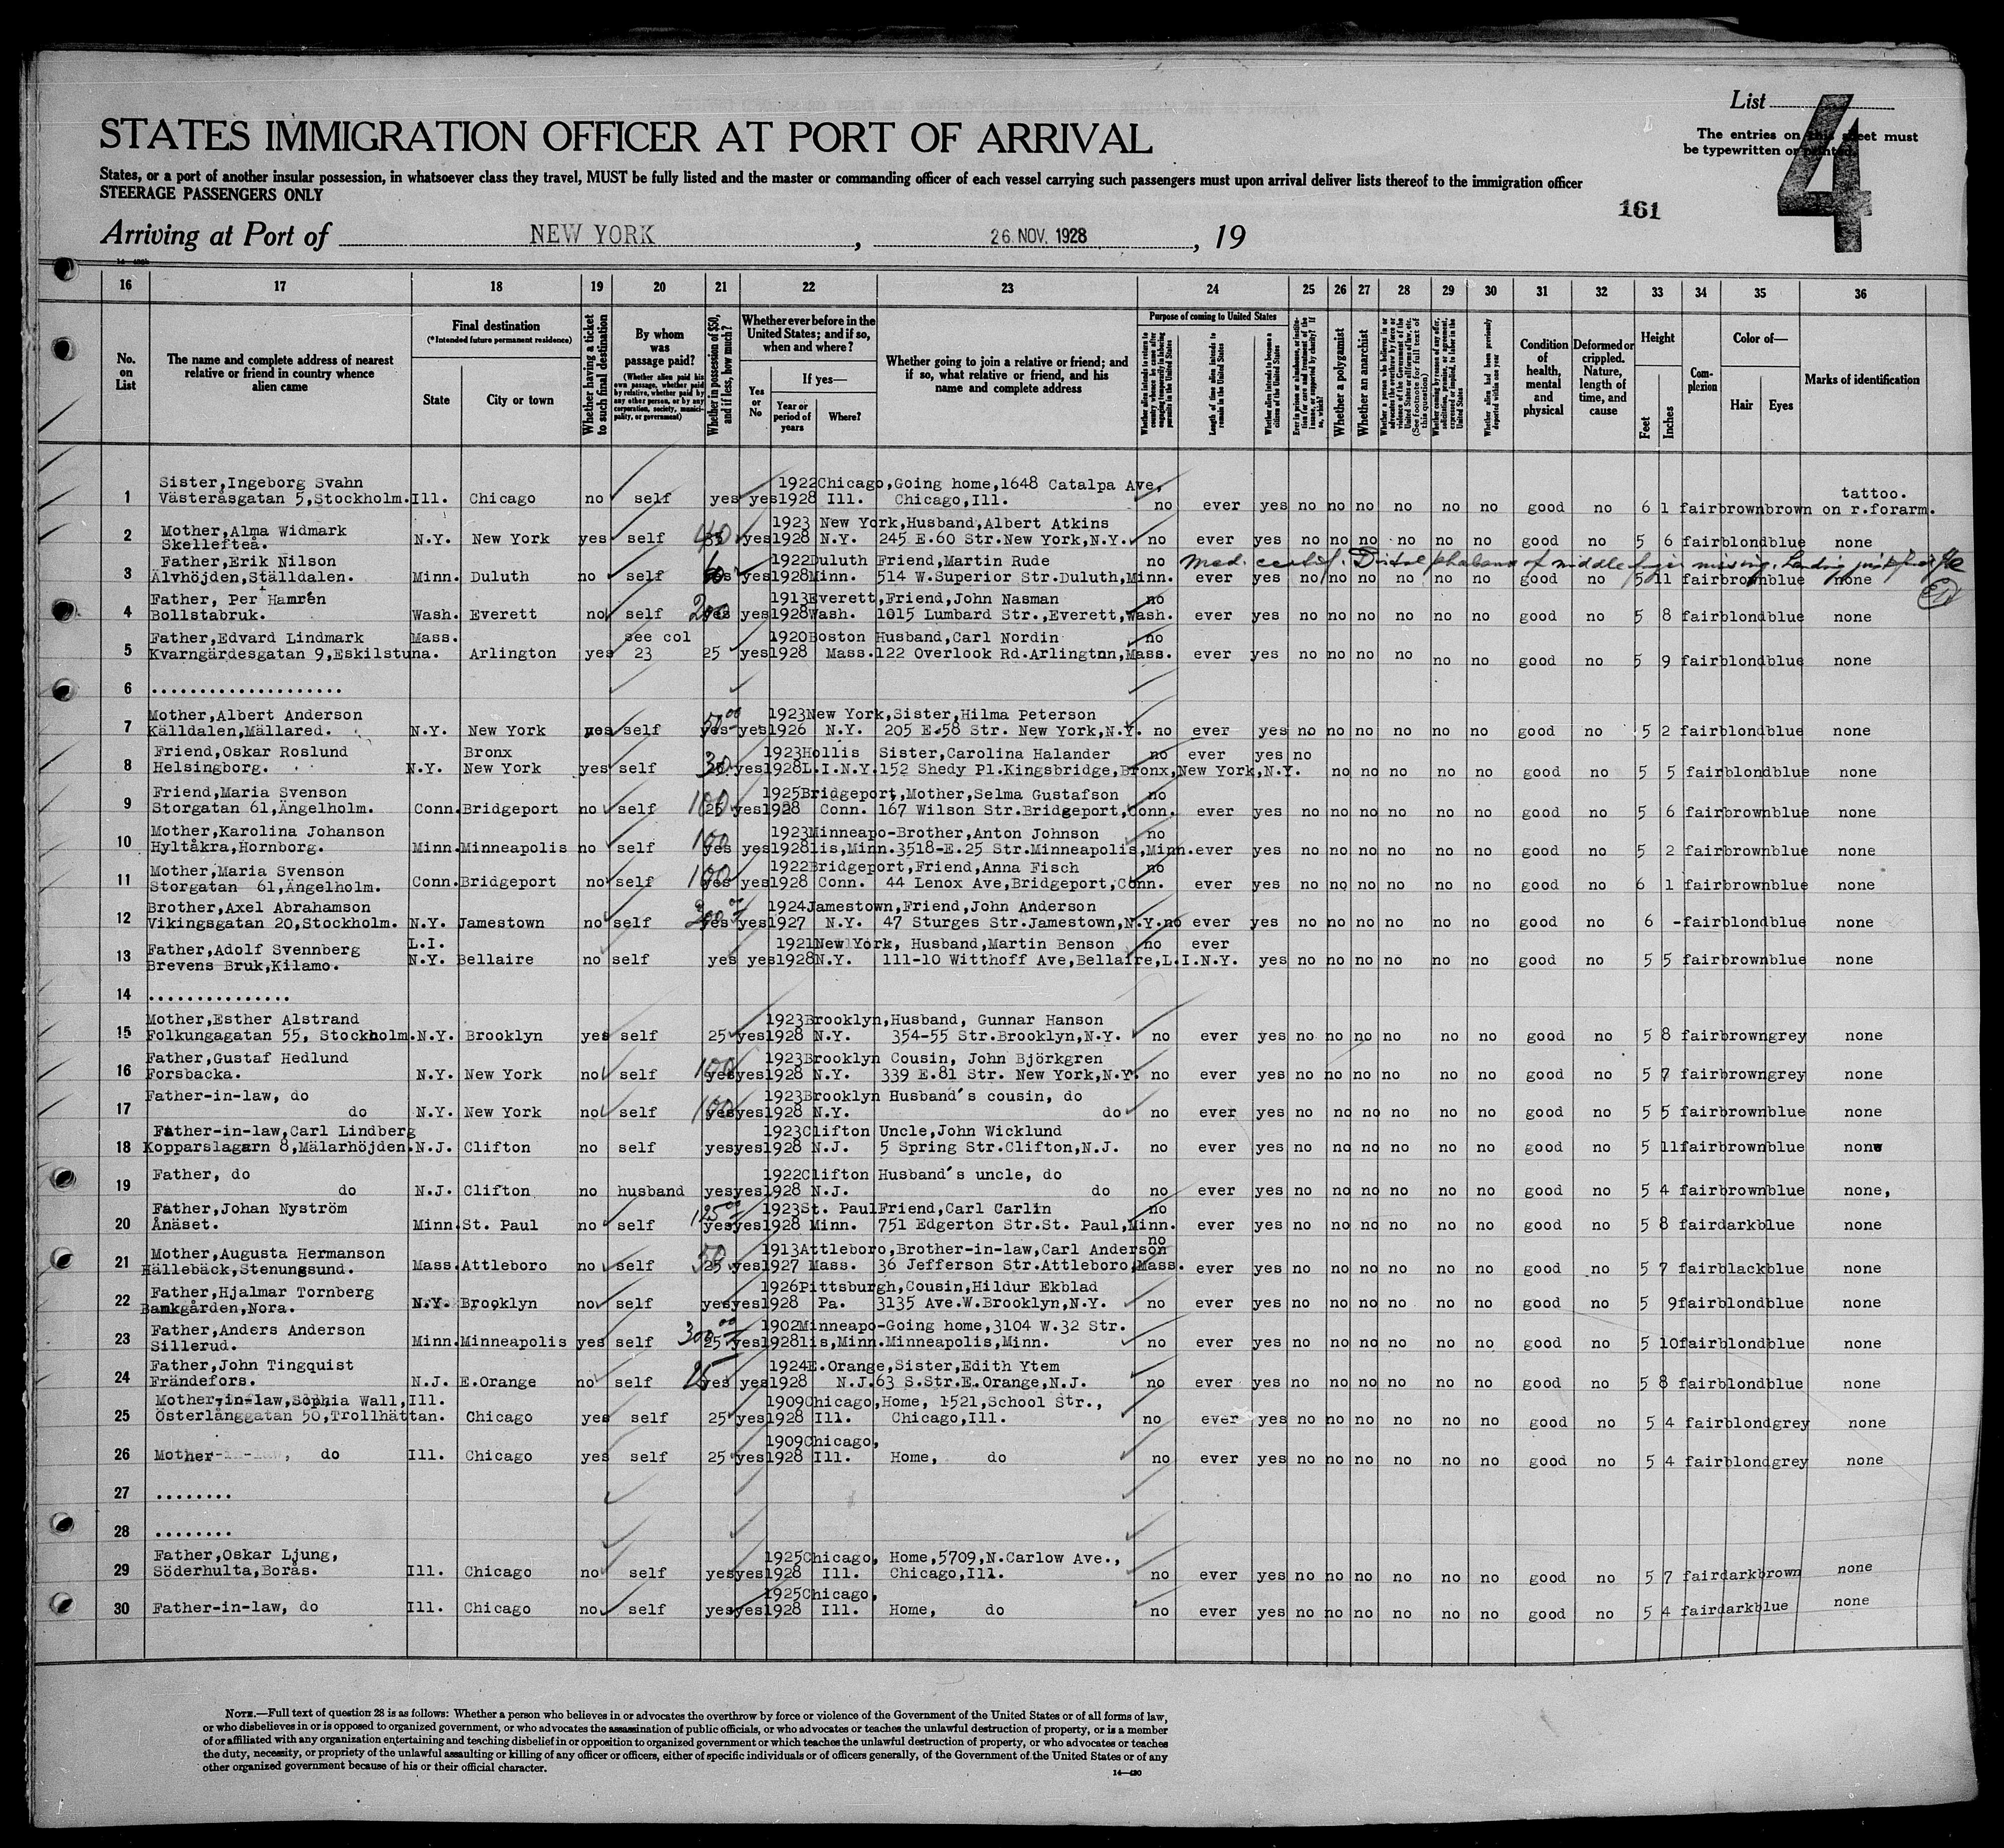 List
The entries on this sheet must
be typewritten or printed.
4
STATES IMMIGRATION OFFICER AT PORT OF ARRIVAL
States, or a port of another insular possession, in whatsoever class they travel, MUST be fully listed and the master or commanding officer of each vessel carrying such passengers must upon arrival deliver lists thereof to the immigration officer
STEERAGE PASSENGERS ONLY
161
Arriving at Port of NEW YORK, 26. NOV. 1928, 19
16 17 18 19 20 21 22 23 24 25 26 27 28 29 30 31 32 33 34 35 36
No. on List
The name and complete address of nearest relative or friend in country whence alien came
Final destination (*Intended future permanent residence)
State
City or town
Whether having a ticket to such final destination
By whom was passage paid? (Whether alien paid his own passage, whether paid by relative, whether paid by any other person, or by any corporation, society, municipality, or government)
Whether in possession of $50, and if less, how much?
Whether ever before in the United States; and if so, when and where?
Yes or No
If yes—
Year or period of years
Where?
Whether going to join a relative or friend; and if so, what relative or friend, and his name and complete address
Purpose of coming to United States
Whether alien intends to return to country whence he came after engaging temporarily in laboring pursuits in the United States
Length of time alien intends to remain in the United States
Whether alien intends to become a citizen of the United States
Ever in prison or almshouse, or institution for care and treatment of the insane, or supported by charity? If so, which?
Whether a polygamist
Whether an anarchist
Whether a person who believes in or advocates the overthrow by force or violence of the Government of the United States or all forms of law, etc. (See footnote for full text of this question)
Whether coming by reason of any offer, solicitation, promise, or agreement, expressed or implied, to labor in the United States
Whether alien had been previously deported within one year
Condition of health, mental and physical
Deformed or crippled. Nature, length of time, and cause
Height
Feet
Inches
Complexion
Color of—
Hair
Eyes
Marks of identification
Sister,Ingeborg Svahn 1922 Chicago,Going home,1648 Catalpa Ave, tattoo.
1 Västeråsgatan 5,Stockholm. Ill. Chicago no self yes yes 1928 Ill. Chicago,Ill. no ever yes no no no no no no good no 6 1 fair brown brown on r.forarm.
Mother,Alma Widmark 1923 New York,Husband,Albert Atkins
2 Skellefteå. N.Y. New York yes self 40 yes 1928 N.Y. 245 E.60 Str.New York,N.Y. no ever yes no no no no no no good no 5 6 fair blond blue none
Father,Erik Nilson 1922 Duluth Friend,Martin Rude no med. certif. Distal phalanx of middle finger missing.
3 Älvhöjden,Ställdalen. Minn. Duluth no self yes yes 1928 Minn. 514 W.Superior Str.Duluth,Minn. ever yes no no no no no no good no 5 11 fair brown blue none
Father, Per Hamrén 1913 Everett,Friend,John Nasman no
4 Bollstabruk. Wash. Everett no self 200 yes yes 1928 Wash. 1015 Lumbard Str.,Everett,Wash. ever yes no no no no no no good no 5 8 fair blond blue none
Father,Edvard Lindmark Mass. see col 1920 Boston Husband,Carl Nordin no
5 Kvarngärdesgatan 9,Eskilstuna. Arlington yes 23 25 yes 1928 Mass. 122 Overlook Rd.Arlingtnn,Mass. ever yes no no no no no no good no 5 9 fair blond blue none
6 .....................
Mother,Albert Anderson 1923 New York,Sister,Hilma Peterson
7 Källdalen,Mällared. N.Y. New York yes self 50 00 yes yes 1926 N.Y. 205 E.58 Str. New York,N.Y. no ever yes no no no no no no good no 5 2 fair blond blue none
Friend,Oskar Roslund Bronx 1923 Hollis Sister,Carolina Halander no ever yes no
8 Helsingborg. N.Y. New York yes self 30 yes 1928 L.I.N.Y. 152 Shedy Pl.Kingsbridge,Bronx,New York,N.Y. no no no no no good no 5 5 fair blond blue none
Friend,Maria Svenson 1925 Bridgeport,Mother,Selma Gustafson no
9 Storgatan 61,Ängelholm. Conn. Bridgeport no self 100 25 yes 1928 Conn. 167 Wilson Str.Bridgeport,Conn. ever yes no no no no no no good no 5 6 fair brown blue none
Mother,Karolina Johanson 1923 Minneapo-Brother,Anton Johnson no
10 Hyltåkra,Hornborg. Minn. Minneapolis no self 100 yes yes 1928 lis,Minn. 3518-E.25 Str.Minneapolis,Minn. ever yes no no no no no no good no 5 2 fair brown blue none
Mother,Maria Svenson 1922 Bridgeport,Friend,Anna Fisch no
11 Storgatan 61,Ängelholm. Conn. Bridgeport no self 100 yes yes 1928 Conn. 44 Lenox Ave,Bridgeport,Conn. ever yes no no no no no no good no 6 1 fair brown blue none
Brother,Axel Abrahamson 1924 Jamestown,Friend,John Anderson
12 Vikingsgatan 20,Stockholm. N.Y. Jamestown no self 300 yes yes 1927 N.Y. 47 Sturges Str.Jamestown,N.Y. no ever yes no no no no no no good no 6 - fair blond blue none
Father,Adolf Svennberg L.I. 1921 New York, Husband,Martin Benson no ever
13 Brevens Bruk,Kilamo. N.Y. Bellaire no self yes yes 1928 N.Y. 111-10 Witthoff Ave,Bellaire,L.I.N.Y. yes no no no no no no good no 5 5 fair brown blue none
14 ...............
Mother,Esther Alstrand 1923 Brooklyn,Husband, Gunnar Hanson
15 Folkungagatan 55, Stockholm. N.Y. Brooklyn yes self 25 yes 1928 N.Y. 354-55 Str.Brooklyn,N.Y. no ever yes no no no no no no good no 5 8 fair brown grey none
Father,Gustaf Hedlund 1923 Brooklyn Cousin, John Björkgren
16 Forsbacka. N.Y. New York no self 100 yes yes 1928 N.Y. 339 E.81 Str. New York,N.Y. no ever yes no no no no no no good no 5 7 fair brown grey none
Father-in-law, do 1923 Brooklyn Husband's cousin, do
17 do N.Y. New York no self 100 yes yes 1928 N.Y. do no ever yes no no no no no no good no 5 5 fair brown blue none
Father-in-law,Carl Lindberg 1923 Clifton Uncle,John Wicklund
18 Kopparslagarn 8,Mälarhöjden. N.J. Clifton no self yes yes 1928 N.J. 5 Spring Str.Clifton,N.J. no ever yes no no no no no no good no 5 11 fair brown blue none
Father, do 1922 Clifton Husband's uncle, do
19 do N.J. Clifton no husband yes yes 1928 N.J. do no ever yes no no no no no no good no 5 4 fair brown blue none,
Father,Johan Nyström 1923 St. Paul Friend,Carl Carlin no
20 Ånäset. Minn. St. Paul no self 125 00 yes yes 1928 Minn. 751 Edgerton Str.St. Paul,Minn. ever yes no no no no no no good no 5 8 fair dark blue none
Mother,Augusta Hermanson 1913 Attleboro,Brother-in-law,Carl Anderson no
21 Hällebäck,Stenungsund. Mass. Attleboro no self 50 25 yes 1927 Mass. 36 Jefferson Str.Attleboro,Mass. ever yes no no no no no no good no 5 7 fair black blue none
Father,Hjalmar Tornberg 1926 Pittsburgh,Cousin,Hildur Ekblad
22 Bamkgården,Nora. N.Y. Brooklyn no self yes yes 1928 Pa. 3135 Ave.W.Brooklyn,N.Y. no ever yes no no no no no no good no 5 9 fair blond blue none
Father,Anders Anderson 1902 Minneapo-Going home,3104 W.32 Str.
23 Sillerud. Minn. Minneapolis yes self 300 00 25 yes 1928 lis,Minn. Minneapolis,Minn. no ever yes no no no no no no good no 5 10 fair blond blue none
Father,John Tingquist 1924 E.Orange,Sister,Edith Ytem
24 Frändefors. N.J. E.Orange no self 25 yes yes 1928 N.J. 63 S.Str.E.Orange,N.J. no ever yes no no no no no no good no 5 8 fair blond blue none
Mother-in-law,Sophia Wall, Ill. 1909 Chicago,Home, 1521,School Str.,
25 Österlånggatan 50,Trollhättan. Chicago yes self 25 yes 1928 Ill. Chicago,Ill. no ever yes no no no no no no good no 5 4 fair blond grey none
1909 Chicago,
26 Mother-in-law, do Ill. Chicago yes self 25 yes 1928 Ill. Home, do no ever yes no no no no no no good no 5 4 fair blond grey none
27 ........
28 ........
Father,Oskar Ljung, 1925 Chicago, Home,5709,N.Carlow Ave.,
29 Söderhulta,Borås. Ill. Chicago no self yes yes 1928 Ill. Chicago,Ill. no ever yes no no no no no no good no 5 7 fair dark brown none
1925 Chicago,
30 Father-in-law, do Ill. Chicago no self yes yes 1928 Ill. Home, do no ever yes no no no no no no good no 5 4 fair dark blue none
NOTE.—Full text of question 28 is as follows: Whether a person who believes in or advocates the overthrow by force or violence of the Government of the United States or of all forms of law,
or who disbelieves in or is opposed to organized government, or who advocates the assassination of public officials, or who advocates or teaches the unlawful destruction of property, or is a member
of or affiliated with any organization entertaining and teaching disbelief in or opposition to organized government or which teaches the unlawful destruction of property, or who advocates or teaches
the duty, necessity, or propriety of the unlawful assaulting or killing of any officer or officers, either of specific individuals or of officers generally, of the Government of the United States or of any
other organized government because of his or their official character.
14—430